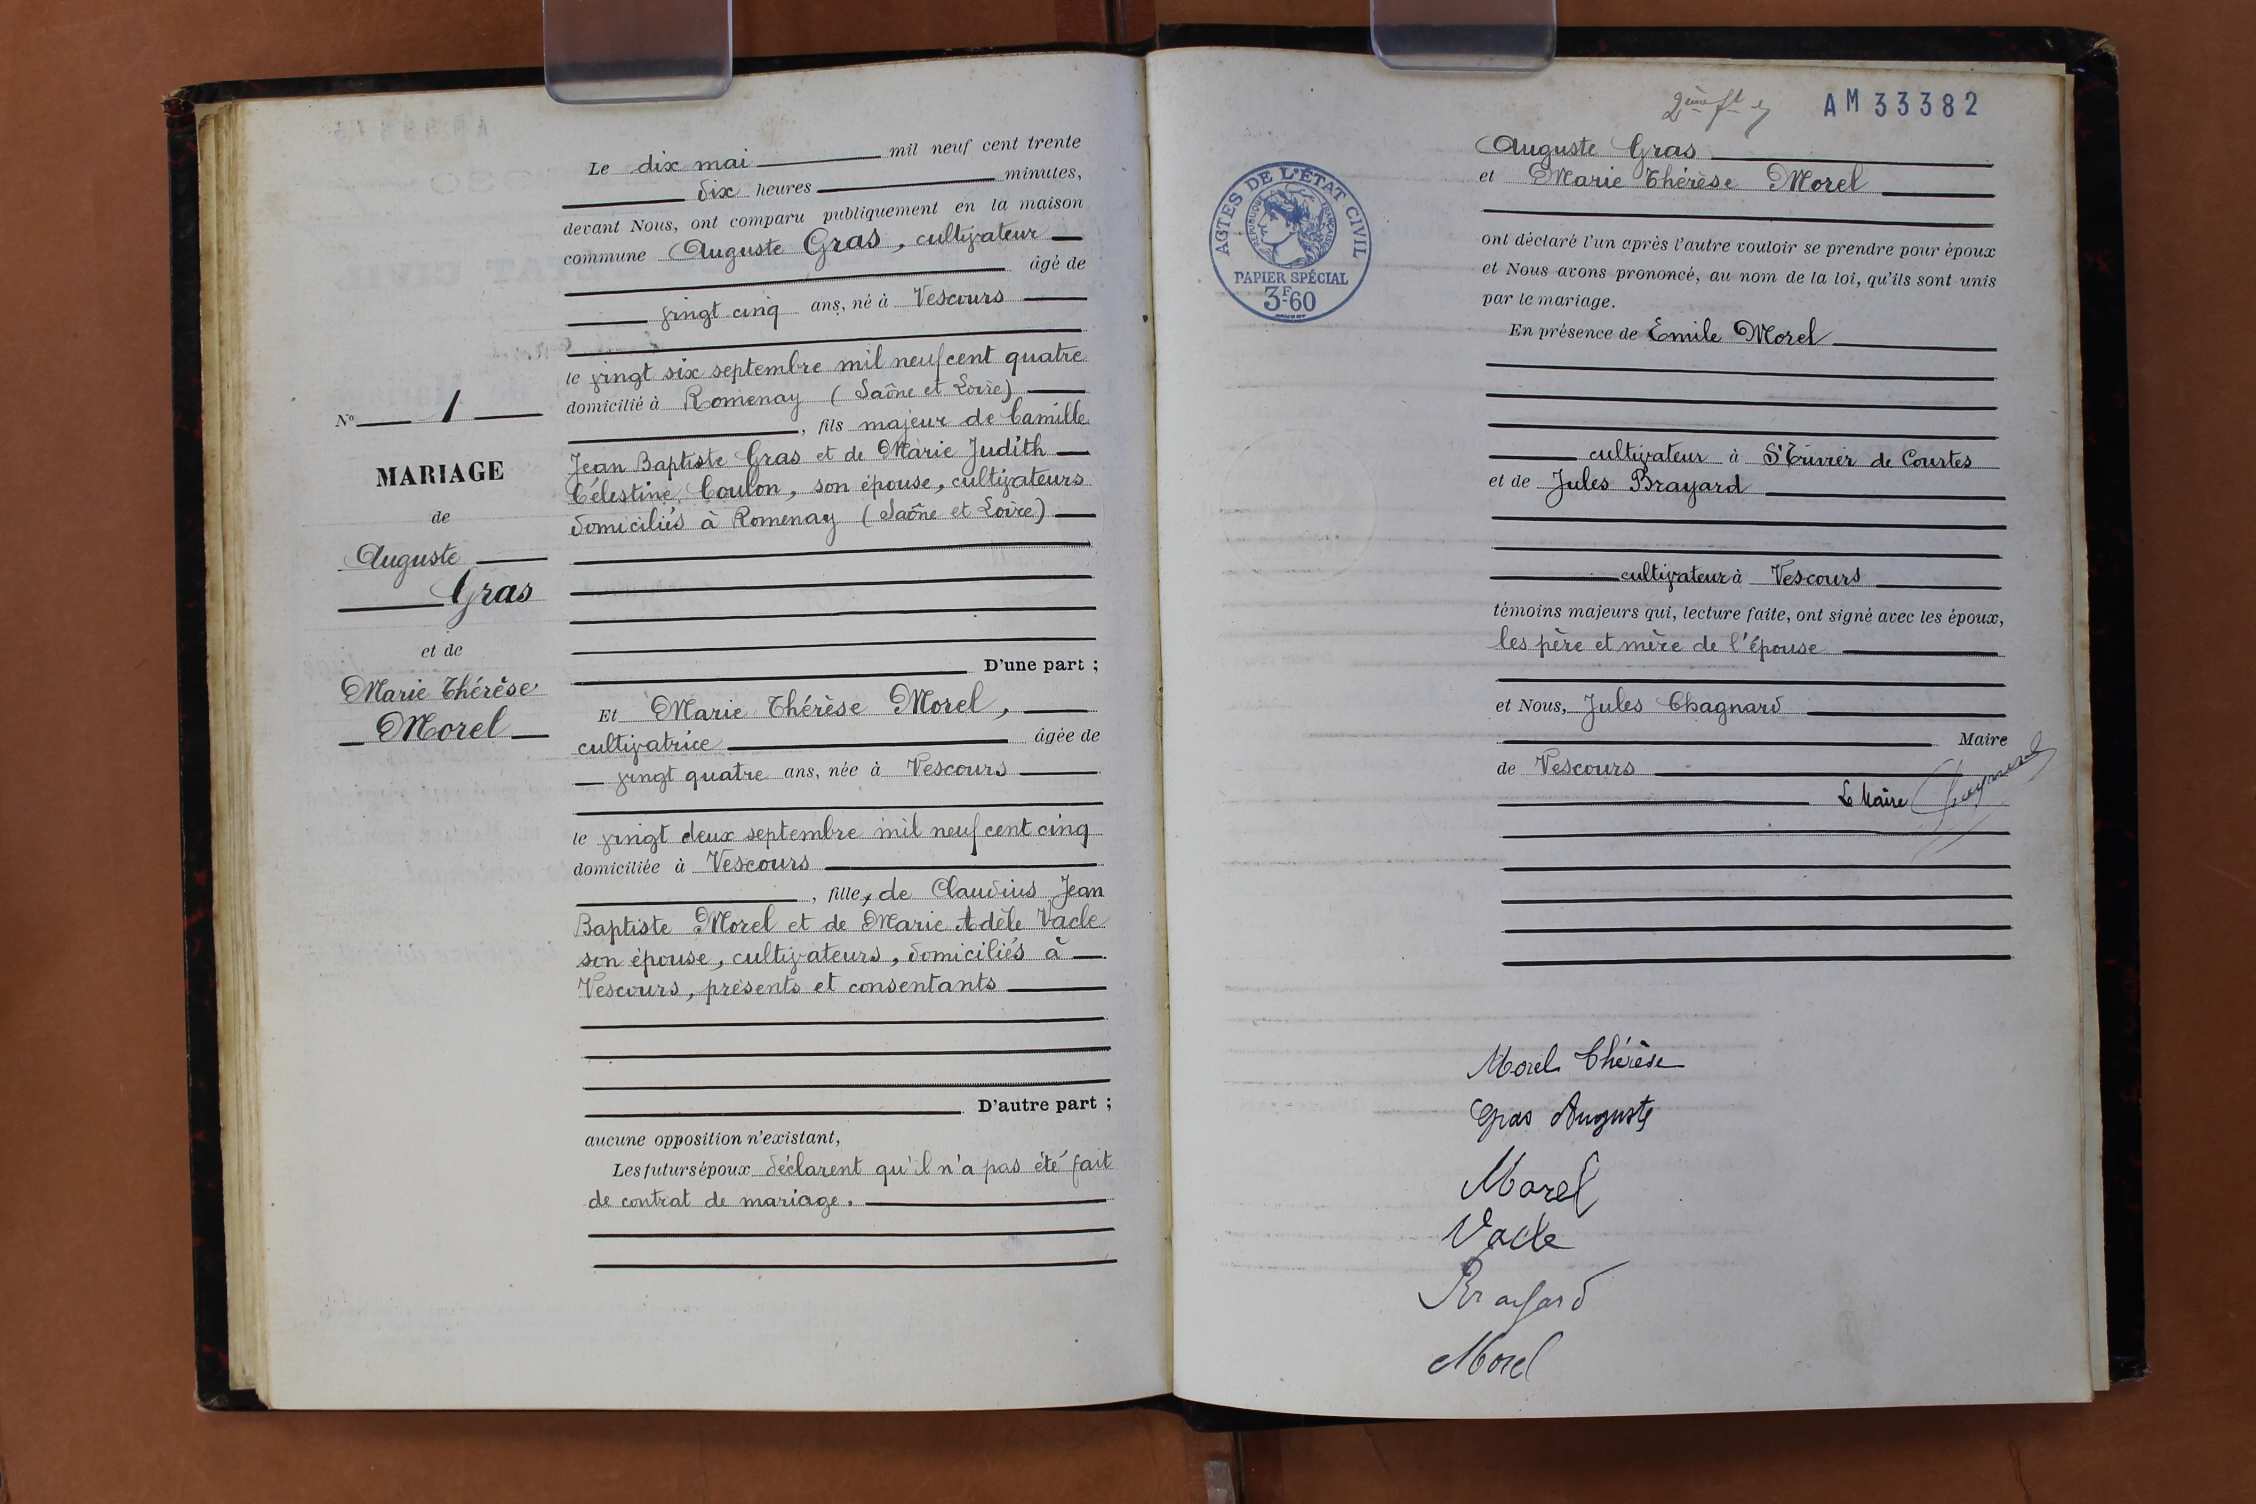 Le dix mai mil neuf cent trente
dix heures minutes,
devant Nous, ont comparu publiquement en la maison
commune Auguste Gras, cultivateur
âgé de
vingt cinq ans, né à Vescours
le vingt six septembre mil neuf cent quatre
domicilié à Romenay (Saône et Loire)
, fils majeur de Camille
Jean Baptiste Gras et de Marie Judith
Célestine Coulon, son épouse, cultivateurs
domiciliés à Romenay (Saône et Loire)
D'une part ;
Et Marie Thérèse Morel,
cultivatrice âgée de
vingt quatre ans, née à Vescours
le vingt deux septembre mil neuf cent cinq
domiciliée à Vescours
, fille, de Claudius Jean
Baptiste Morel et de Marie Adèle Vacle
son épouse, cultivateurs, domiciliés à
Vescours, présents et consentants
D'autre part ;
aucune opposition n'existant,
Les futurs époux déclarent qu'il n'a pas été fait
de contrat de mariage.
No 1
MARIAGE
de
Auguste
Gras
et de
Marie Thérèse
Morel
AM 33382
ACTES DE L'ÉTAT CIVIL
RÉPUBLIQUE FRANÇAISE
PAPIER SPÉCIAL
3F60
Auguste Gras
et Marie Thérèse Morel
ont déclaré l'un après l'autre vouloir se prendre pour époux
et Nous avons prononcé, au nom de la loi, qu'ils sont unis
par le mariage.
En présence de Emile Morel
cultivateur à St Trivier de Courtes
et de Jules Brayard
cultivateur à Vescours
témoins majeurs qui, lecture faite, ont signé avec les époux,
les père et mère de l'épouse
et Nous, Jules Chagnard
Maire
de Vescours
Le Maire Chagnard
Morel Thérèse
Gras Auguste
Morel
Vacle
Brayard
Morel